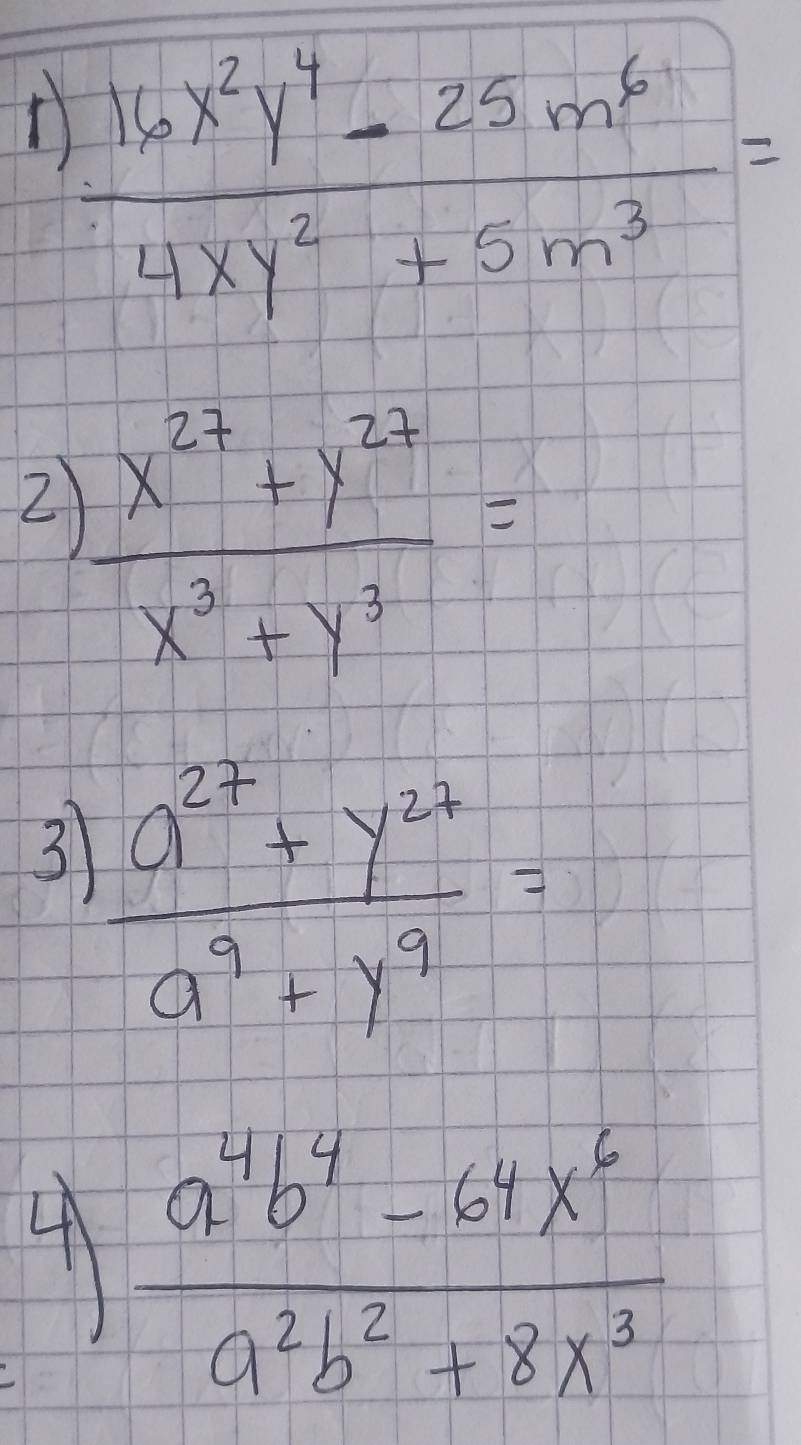 1) 16x²y⁴ - 25m⁶ =
4xy² + 5m³
2) x²⁷ + y²⁷ =
x³ + y³
3) a²⁷ + y²⁷ =
a⁹ + y⁹
4) a⁴b⁴ - 64x⁶
a²b² + 8x³